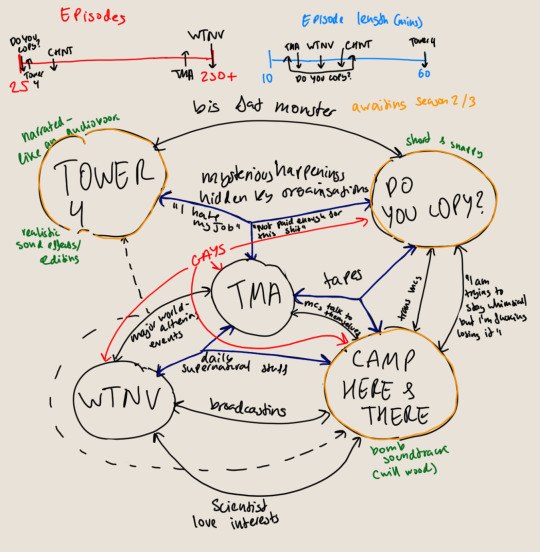 Episodes
DO YOU
COPY?
TOWER
4
CHNT
WTNV
TMA
25
230+
Episode length (mins)
TMA
WTNV
CHNT
Tower 4
DO YOU COPY?
10
60
big sad monster
awaiting season 2/3
narrated-
like an audiobook
TOWER
4
realistic
sound effects/
editing
short & snappy
DO
YOU COPY?
mysterious happenings
hidden by organisations
"I hate
my job"
"Not paid enough for
this shit"
GAYS
TMA
tapes
trans mcs
"I am
trying to
stay whimsical
but i'm fucking
losing it"
major world-
altering
events
mcs talk to
themselves
daily
supernatural stuff
WTNV
broadcasting
CAMP
HERE &
THERE
bomb
soundtrack
(will wood)
Scientist
love interests